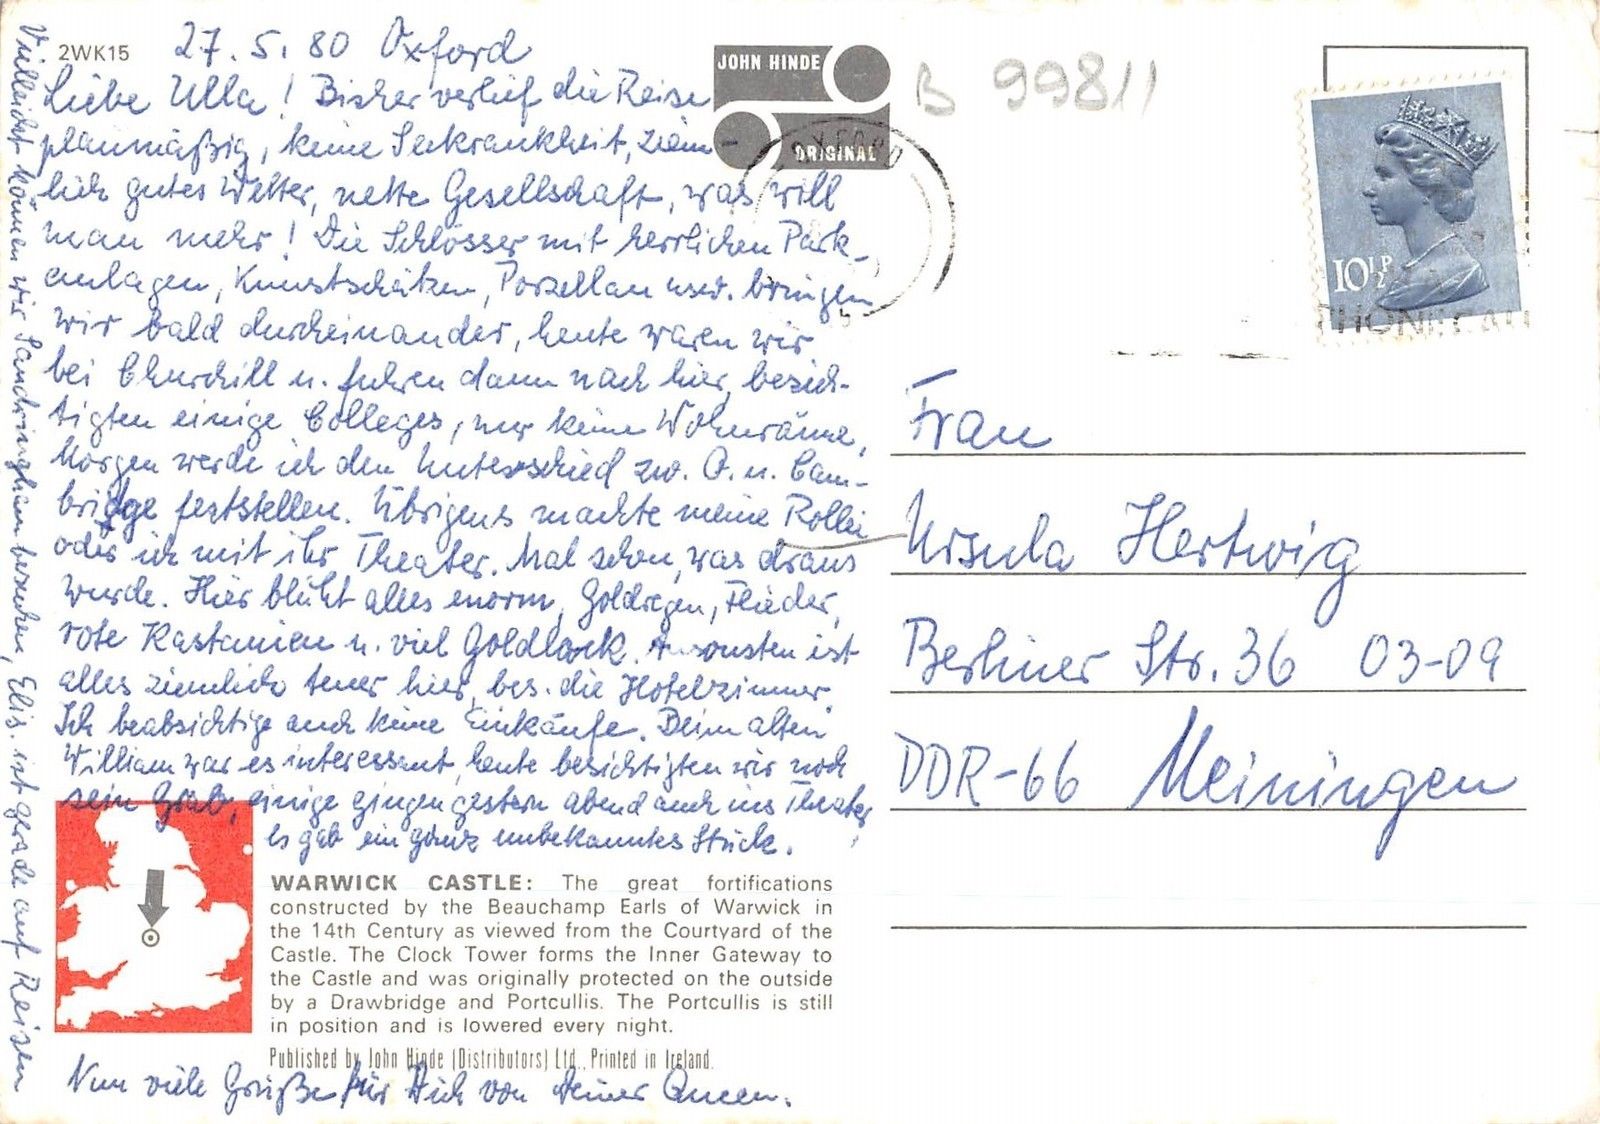 2WK15
27.5.80 Oxford
Liebe Ulla! Bisher verlief die Reise
planmäßig, keine Seekrankheit, ziem-
lich gutes Wetter, nette Gesellschaft, was will
man mehr! Die Schlösser mit herrlichen Park-
anlagen, Kunstschätzen, Porzellan usw. bringen
wir bald durcheinander, heute waren wir
bei Churchill u. fuhren dann nach hier, besich-
tigten einige Colleges, nur keine Wohnräume,
Morgen werde ich den Unterschied zw. O. u. Cam-
bridge feststellen. Übrigens machte meine Rollei
oder ich mit ihr Theater. Mal sehn, was draus
wurde. Hier blüht alles enorm, Goldregen, Flieder,
rote Kastanien u. viel Goldlack. Ansonsten ist
alles ziemlich teuer hier, bes. die Hotelzimmer.
Ich beabsichtige auch keine Einkäufe. Beim alten
William war es interessant, heute besichtigten wir noch
sein Grab, einige gingen gestern abend auch ins Theater,
es gab ein ganz unbekanntes Stück.
Vielleicht können wir Sandringham besuchen, Elis. ist gerade auf Reisen
Nun viele Grüße für Dich von Deiner Queen.
WARWICK CASTLE: The great fortifications
constructed by the Beauchamp Earls of Warwick in
the 14th Century as viewed from the Courtyard of the
Castle. The Clock Tower forms the Inner Gateway to
the Castle and was originally protected on the outside
by a Drawbridge and Portcullis. The Portcullis is still
in position and is lowered every night.
Published by John Hinde (Distributors) Ltd., Printed in Ireland.
JOHN HINDE
ORIGINAL
B 99811
10½P
Frau
Ursula Hertwig
Berliner Str. 36 03-09
DDR-66 Meiningen